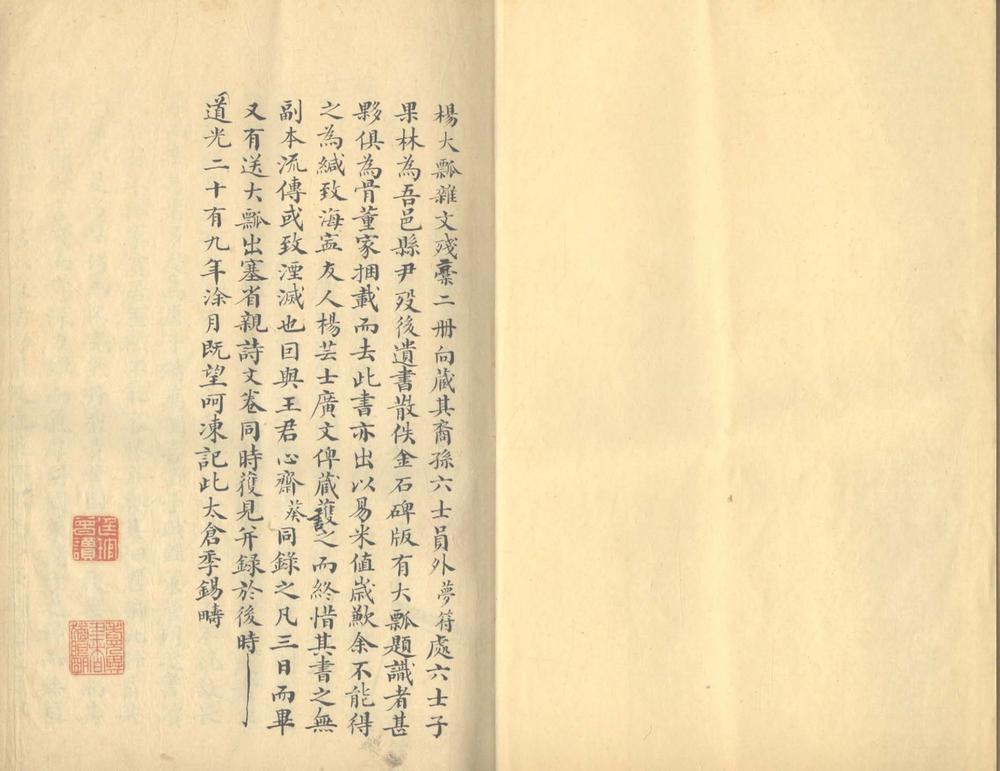 楊大瓢雜文殘藁二册向藏其裔孫六士員外夢符處六士子
果林為吾邑縣尹歿後遺書散佚金石碑版有大瓢題識者甚
夥俱為骨董家捆載而去此書亦出以易米值歲歉余不能得
之為緘致海寍友人楊芸士廣文俾蔵護之而終惜其書之無
副本流傳或致湮滅也因與王君心齋葵同錄之凡三日而畢
又有送大瓢出塞省親詩文卷同時獲見并録於後時
道光二十有九年涂月既望呵凍記此太倉季錫疇